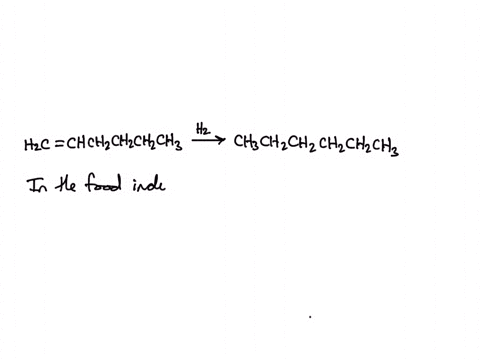 H₂C=CHCH₂CH₂CH₂CH₃ H₂→ CH₃CH₂CH₂CH₂CH₂CH₃
In the food inde